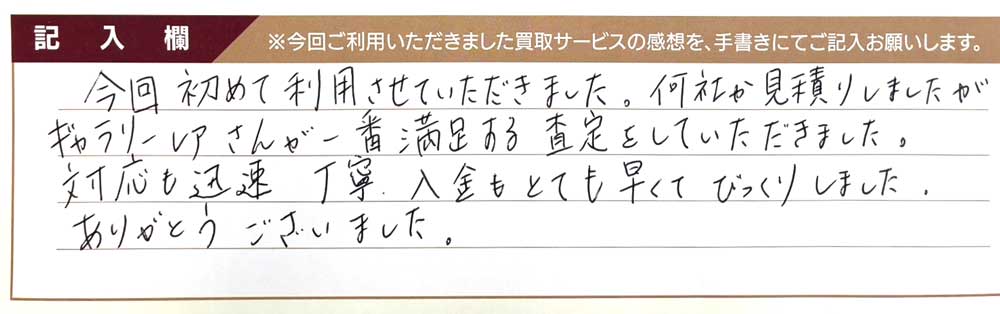 記入欄
※今回ご利用いただきました買取サービスの感想を、手書きにてご記入お願いします。
今回 初めて利用させていただきました。何社か見積りしましたが
ギャラリーレアさんが一番満足する査定をしていただきました。
対応も迅速 丁寧、入金もとても早くてびっくりしました。
ありがとうございました。